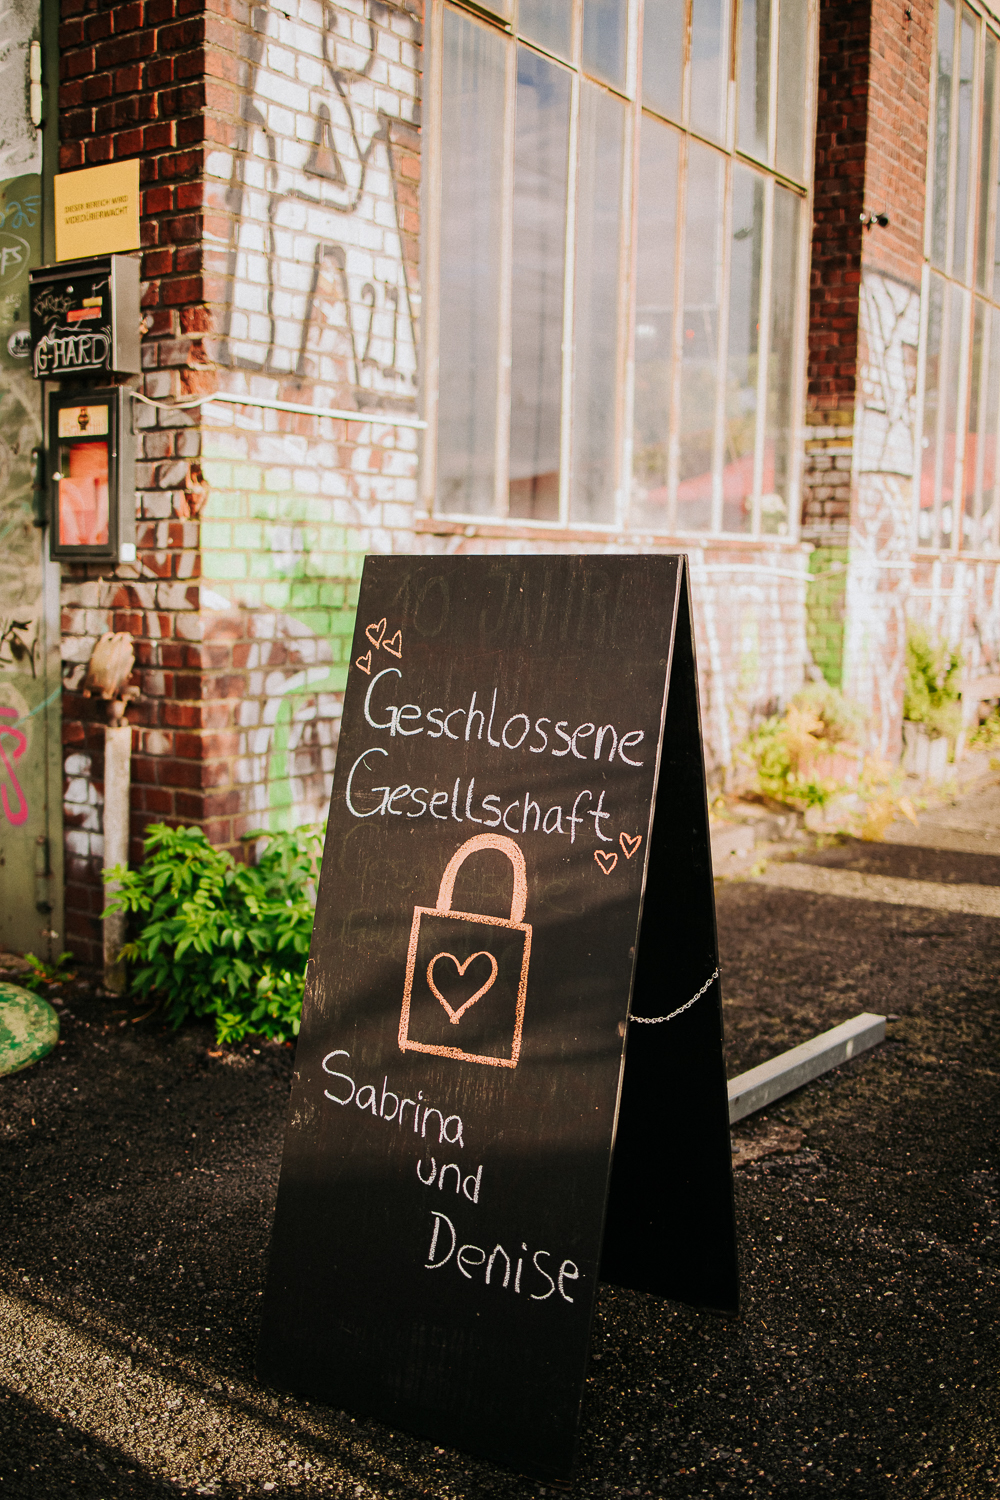 DIESER BEREICH WIRD
VIDEOÜBERWACHT
G-HARD
Geschlossene
Gesellschaft
Sabrina
und
Denise